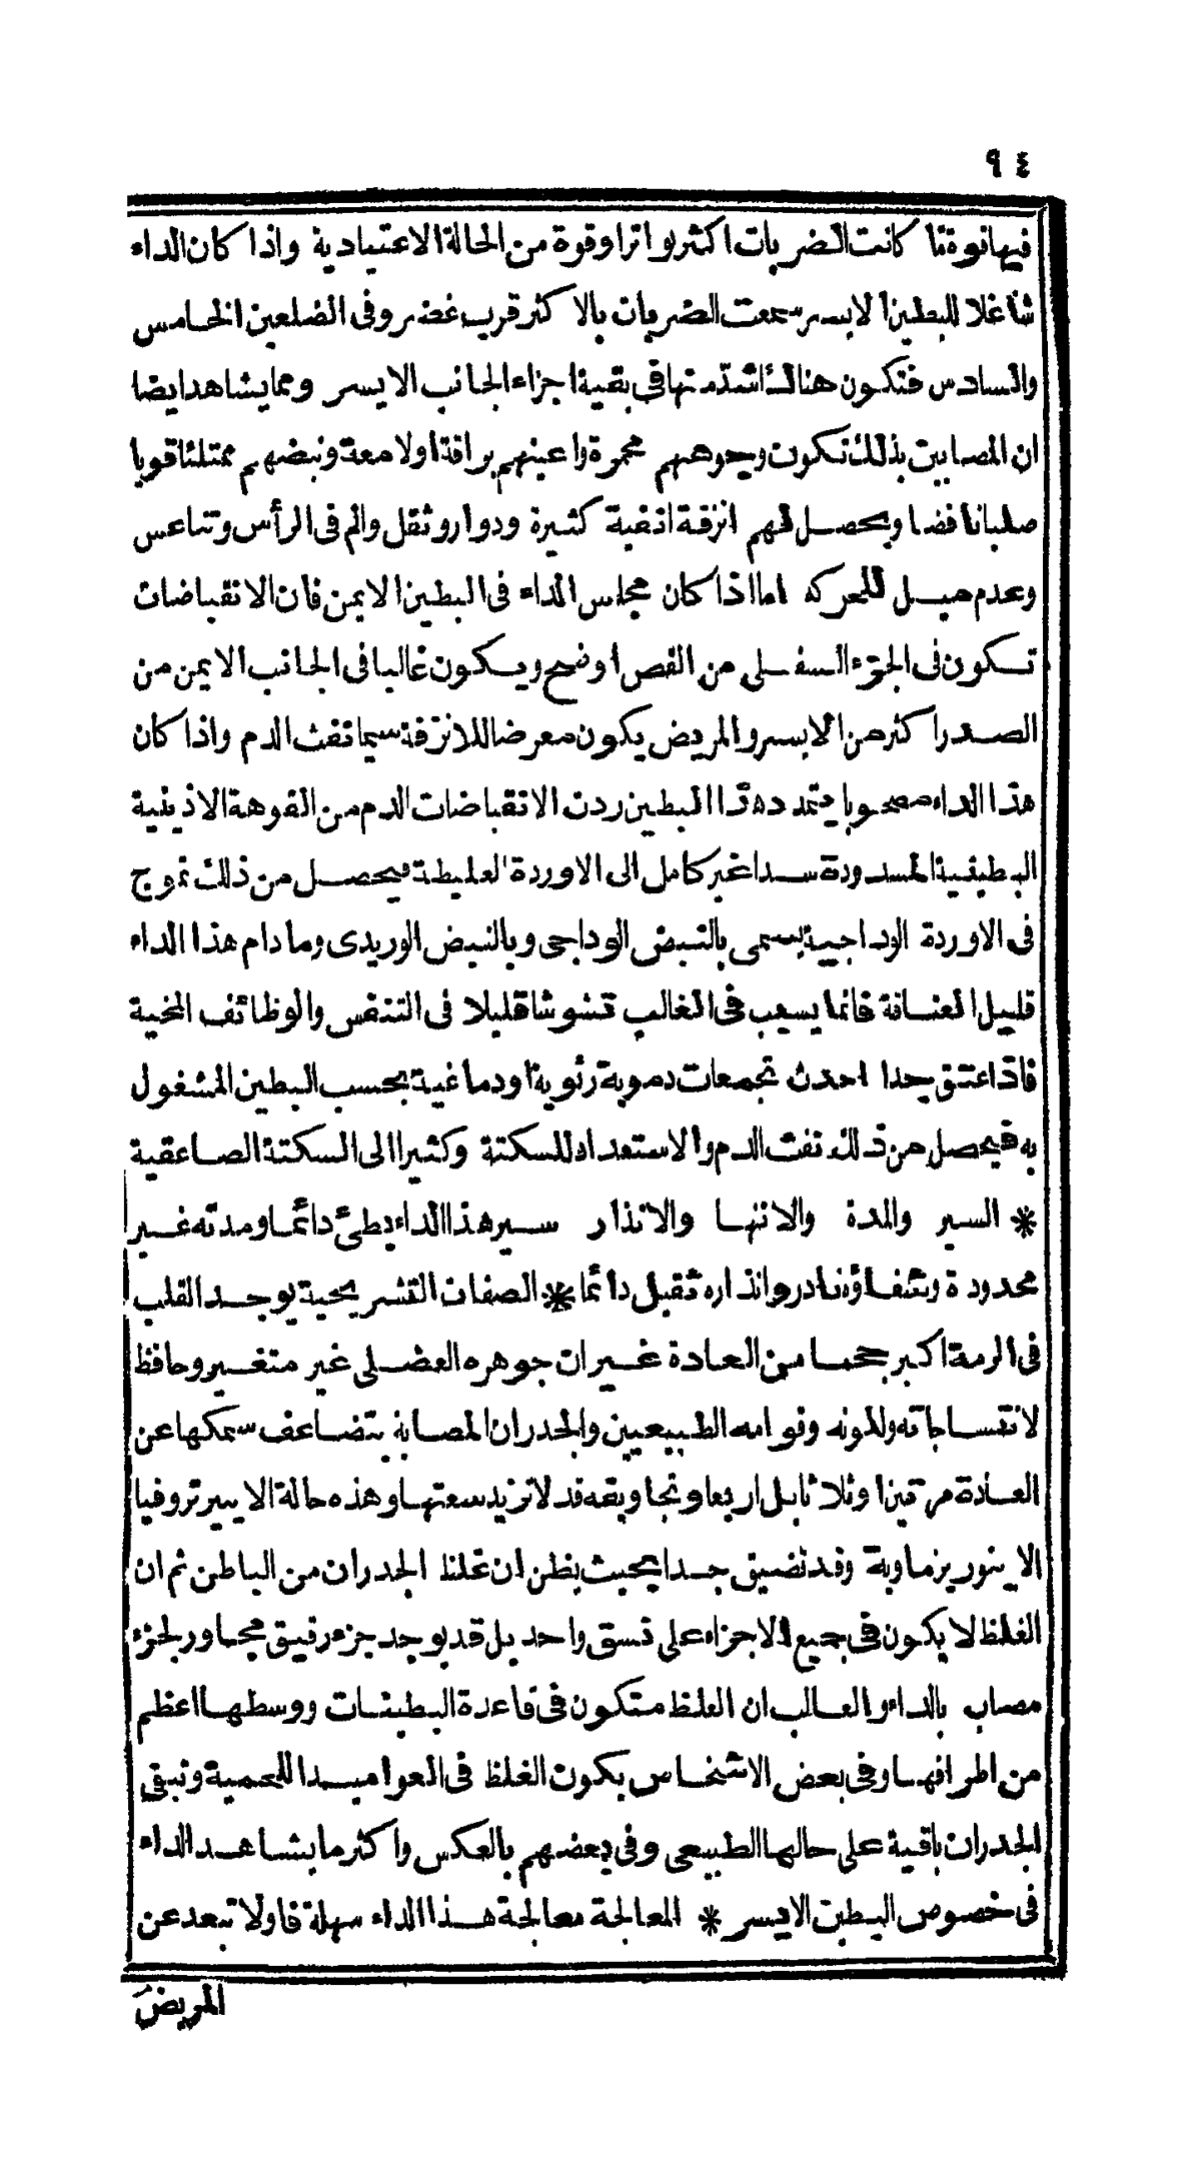 ٩٤
فيها قوة ما كانت الضربات اكثر تواترا وقوة من الحالة الاعتيادية واذا كان الداء
شاغلا للبطين الايسر سمعت الضربات بالاكثر قرب غضروفى الضلعين الخامس
والسادس فتكون هناك اشد منها فى بقية اجزاء الجانب الايسر ومما يشاهد ايضا
ان المصابين بذلك تكون وجوههم محمرة واعينهم براقة اولامعة ونبضهم ممتلئا قويا
صلبا نافضا ويحصل لهم انزفة انفية كثيرة ودوار وثقل والم فى الرأس وتناعس
وعدم ميل للحركه اما اذا كان مجلس الداء فى البطين الايمن فان الانقباضات
تكون فى الجزء السفلى من القص اوضح ويكون غالبا فى الجانب الايمن من
الصدر اكثر من الايسر والمريض يكون معرضا للانزفة سيما نفث الدم واذا كان
هذا الداء مصحوبا بتمدد هذا البطين ردت الانقباضات الدم من الفوهة الاذينية
البطينية المسدودة سدا غير كامل الى الاوردة الغليظة فيحصل من ذلك تموج
فى الاوردة الوداجية يسمى بالنبض الوداجى وبالنبض الوريدى ومادام هذا الداء
قليل العتاقة فانما يسبب فى الغالب تشوشا قليلا فى التنفس والوظائف المخية
فاذا عتق جدا احدث تجمعات دموية رئوية اودماغية بحسب البطين المشغول
به فيحصل من ذلك نفث الدم والاستعداد للسكتة وكثيرا الى السكتة الصاعقية
* السير والمدة والانتها والانذار سير هذا الداء بطئ دائما ومدته غير
محدودة وشفاؤه نادر وانذاره ثقيل دائما * الصفات التشريحية يوجد القلب
فى الرمة اكبر حجما من العادة غير ان جوهره العضلى غير متغير وحافظ
لانتساجاته ولونه وقوامه الطبيعيين والجدران المصابة يتضاعف سمكها عن
العادة مرتين اوثلاثا بل اربعا وتجاويفه قد لا تزيد سعتها وهذه حالة الايبرتروفيا
الاينوريزماوية وقد تضيق جدا بحيث يظن ان غلظ الجدران من الباطن ثم ان
الغلظ لا يكون فى جميع الاجزاء على نسق واحد بل قد يوجد جزء رقيق مجاور لجزء
مصاب بالداء والغالب ان الغلظ متكون فى قاعدة البطينات ووسطها اعظم
من اطرافها وفى بعض الاشخاص يكون الغلظ فى العواميد اللحمية وتبقى
الجدران باقية على حالها الطبيعى وفى بعضهم بالعكس واكثر ما يشاهد الداء
فى خصوص البطين الايسر * المعالجة معالجة هذا الداء سهلة فاولا تبعد عن
المريض